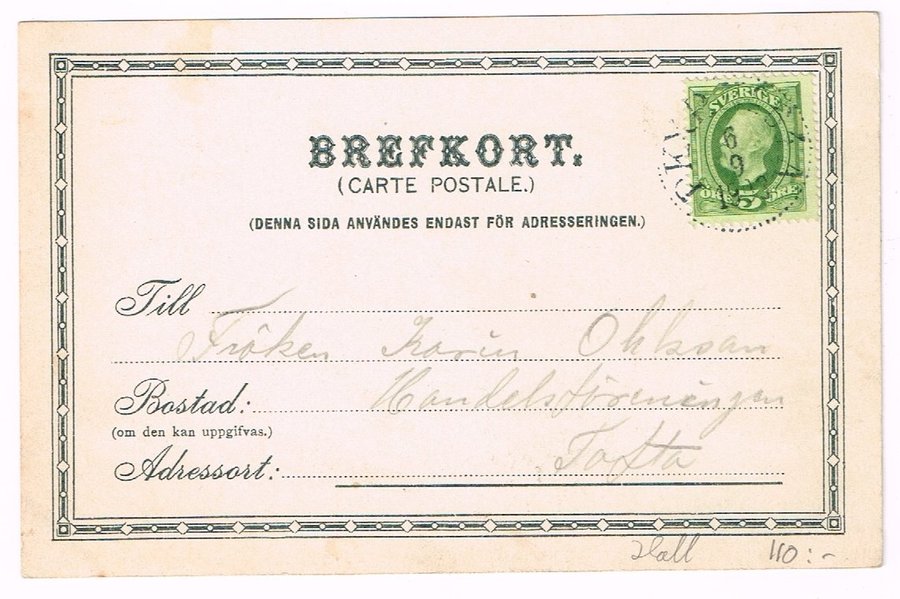 BREFKORT.
(CARTE POSTALE.)
(DENNA SIDA ANVÄNDES ENDAST FÖR ADRESSERINGEN.)
SVERIGE
6
9
5 ÖRE
Till
Fröken Karin Ohlsson
Bostad: Handelsföreningen
(om den kan uppgifvas.)
Adressort: Tofta
110:-